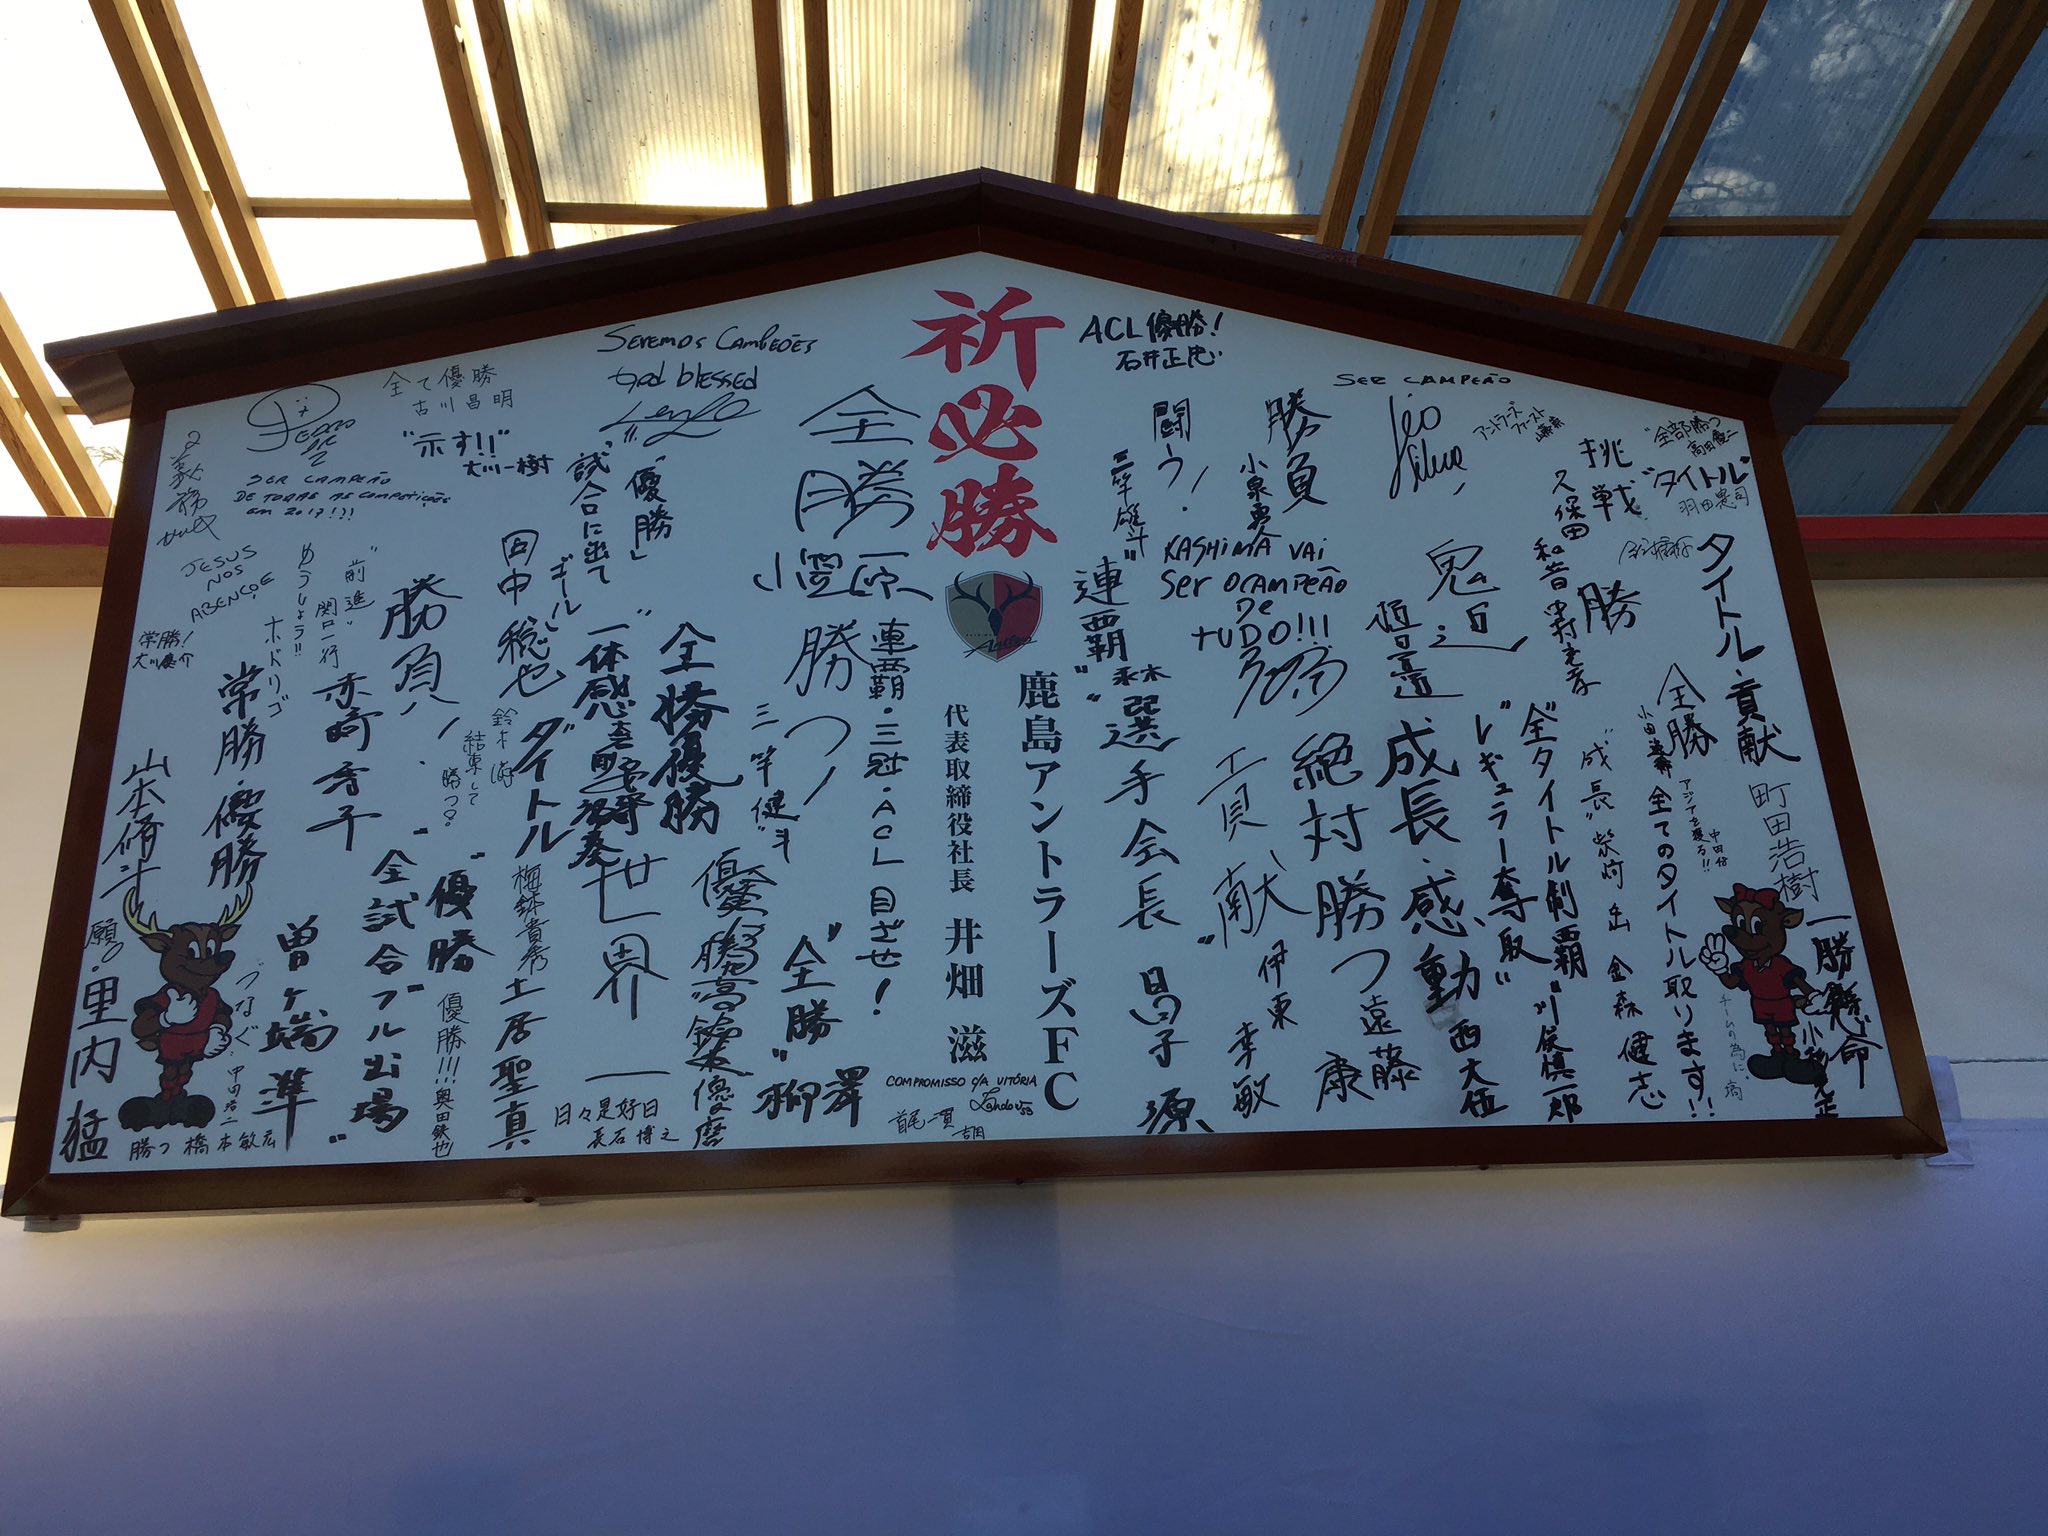 祈必勝
鹿島アントラーズFC
代表取締役社長 井畑 滋
ACL優勝!
石井正忠
SER CAMPEÃO
闘う!
三竿雄斗
勝負
小泉 勇介
KASHIMA VAI
SER O CAMPEÃO
DE
TUDO!!!
"連覇"
永木
"選手会長
昌子 源
"貢献"
伊東 幸敏
絶対勝つ
遠藤 康
成長・感動
西 大伍
鬼迫
アントラーズ
ファースト
挑戦
久保田 和音
勝
"全部勝つ"
"タイトル"
羽田憲司
タイトル・貢献
町田浩樹
"全"タイトル制覇"
川俣慎一郎
"レギュラー奪取"
"成長"
全勝
小田逸稀
アジアを獲る!!
全てのタイトル取ります!!
金森 健志
チームの為に。
SEREMOS CAMPEÕES
God blessed
全て優勝
古川昌明
"示す!!"
大川一樹
PEDRO
JR
SER CAMPEÃO
DE TODAS AS COMPETIÇÕES
EM 2017!?!
JESUS
NOS
ABENÇOE
常勝!
全勝
小笠原
勝つ!
連覇・三冠・ACL 目ざせ!
三竿 健斗
"全勝"
柳澤
全勝優勝
「優勝」
試合に出て
ゴール
田中 稔也
"一体感"
世界一
優勝
鈴木 優磨
タイトル
梅鉢貴秀
土居聖真
結束して
勝つ?
勝負!
"前進"
関口一行
めうしょう!!
ホドリゴ
赤﨑 秀平
常勝・優勝
山本脩斗
"全試合フル出場"
"優勝"
優勝!!!
奥田鉄也
曽ヶ端 準
づなぐ
中田浩二
里内 猛
勝つ 橋本敏広
日々是好日
長石博之
COMPROMISSO C/A VITÓRIA
首尾一貫
吉田